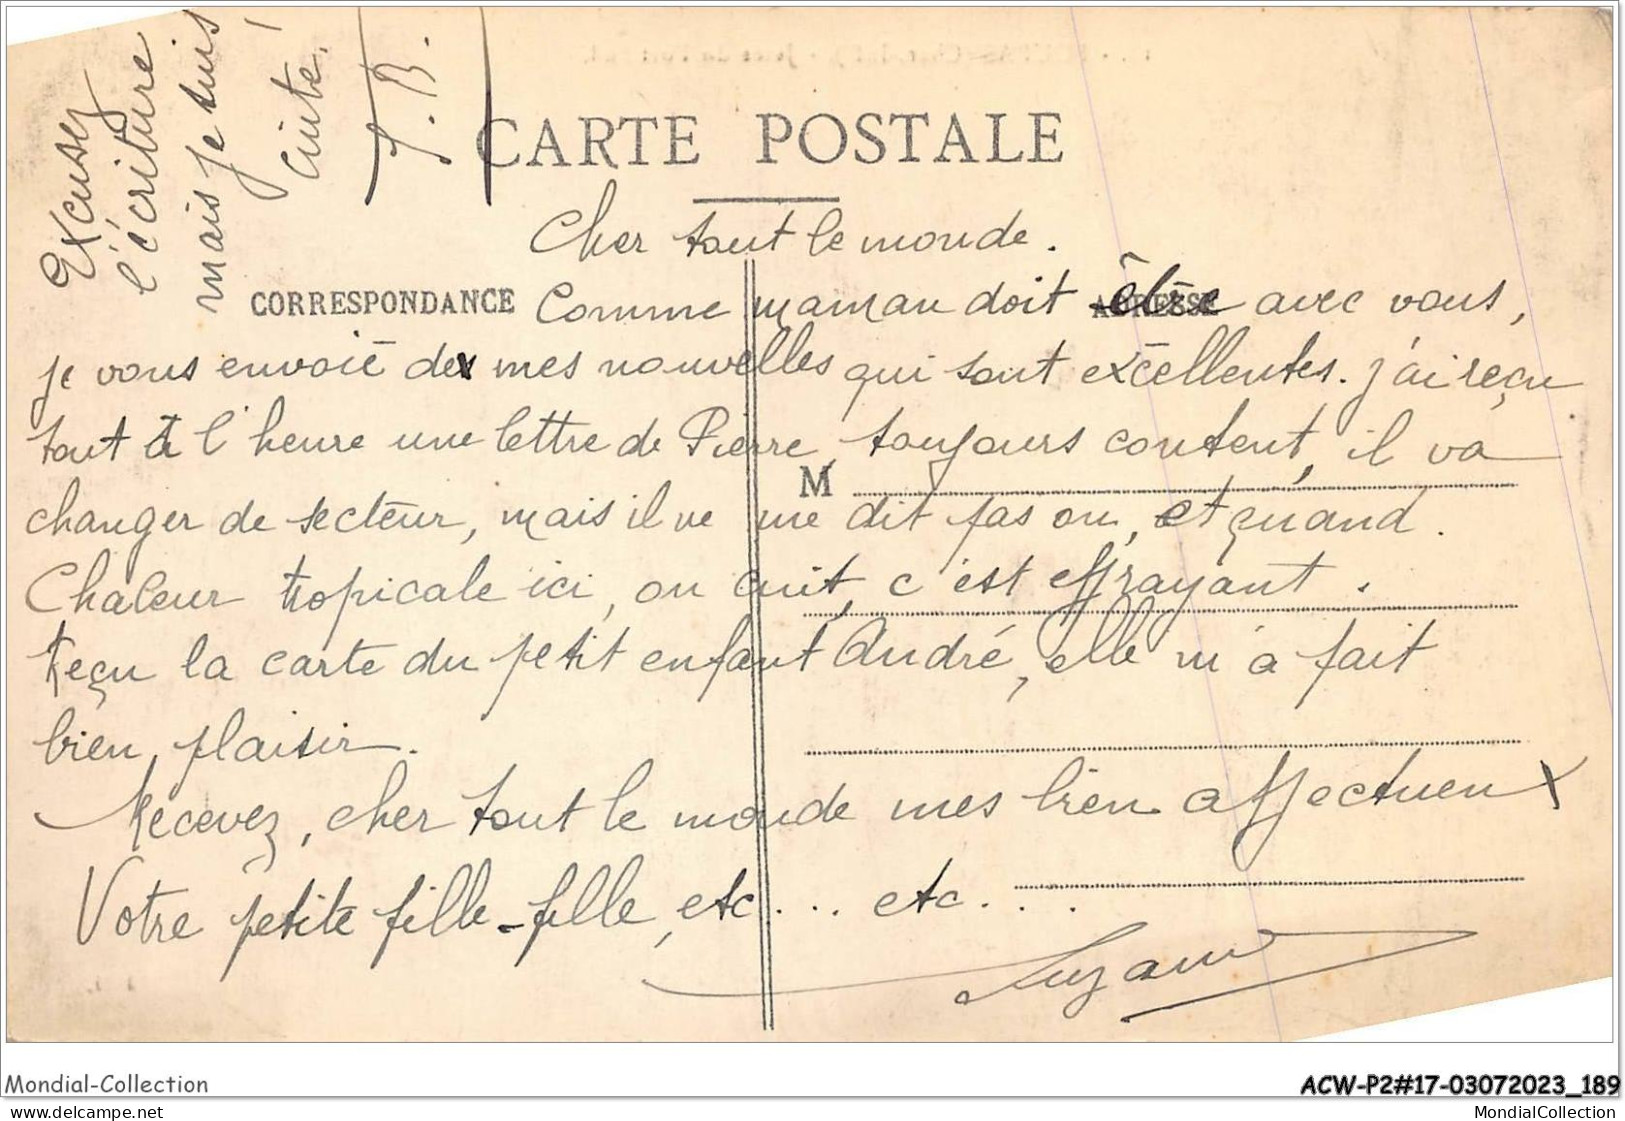 Excusez
l'écriture
mais je suis
cuite !
J. B.
CARTE POSTALE
Cher tout le monde.
CORRESPONDANCE
ADRESSE
Comme maman doit être avec vous,
je vous envoie de mes nouvelles qui sont excellentes. J'ai reçu
tout à l'heure une lettre de Pierre, toujours content, il va
M
changer de secteur, mais il ne me dit pas ou, et quand.
Chaleur tropicale ici, on cuit, c'est effrayant.
Reçu la carte du petit enfant André, elle m'a fait
bien plaisir.
Recevez, cher tout le monde mes bien affectueux
Votre petite fille-fille, etc... etc...
Suzanne
Mondial-Collection
ACW-P2#17-03072023_189
delcampe.net
MondialCollection